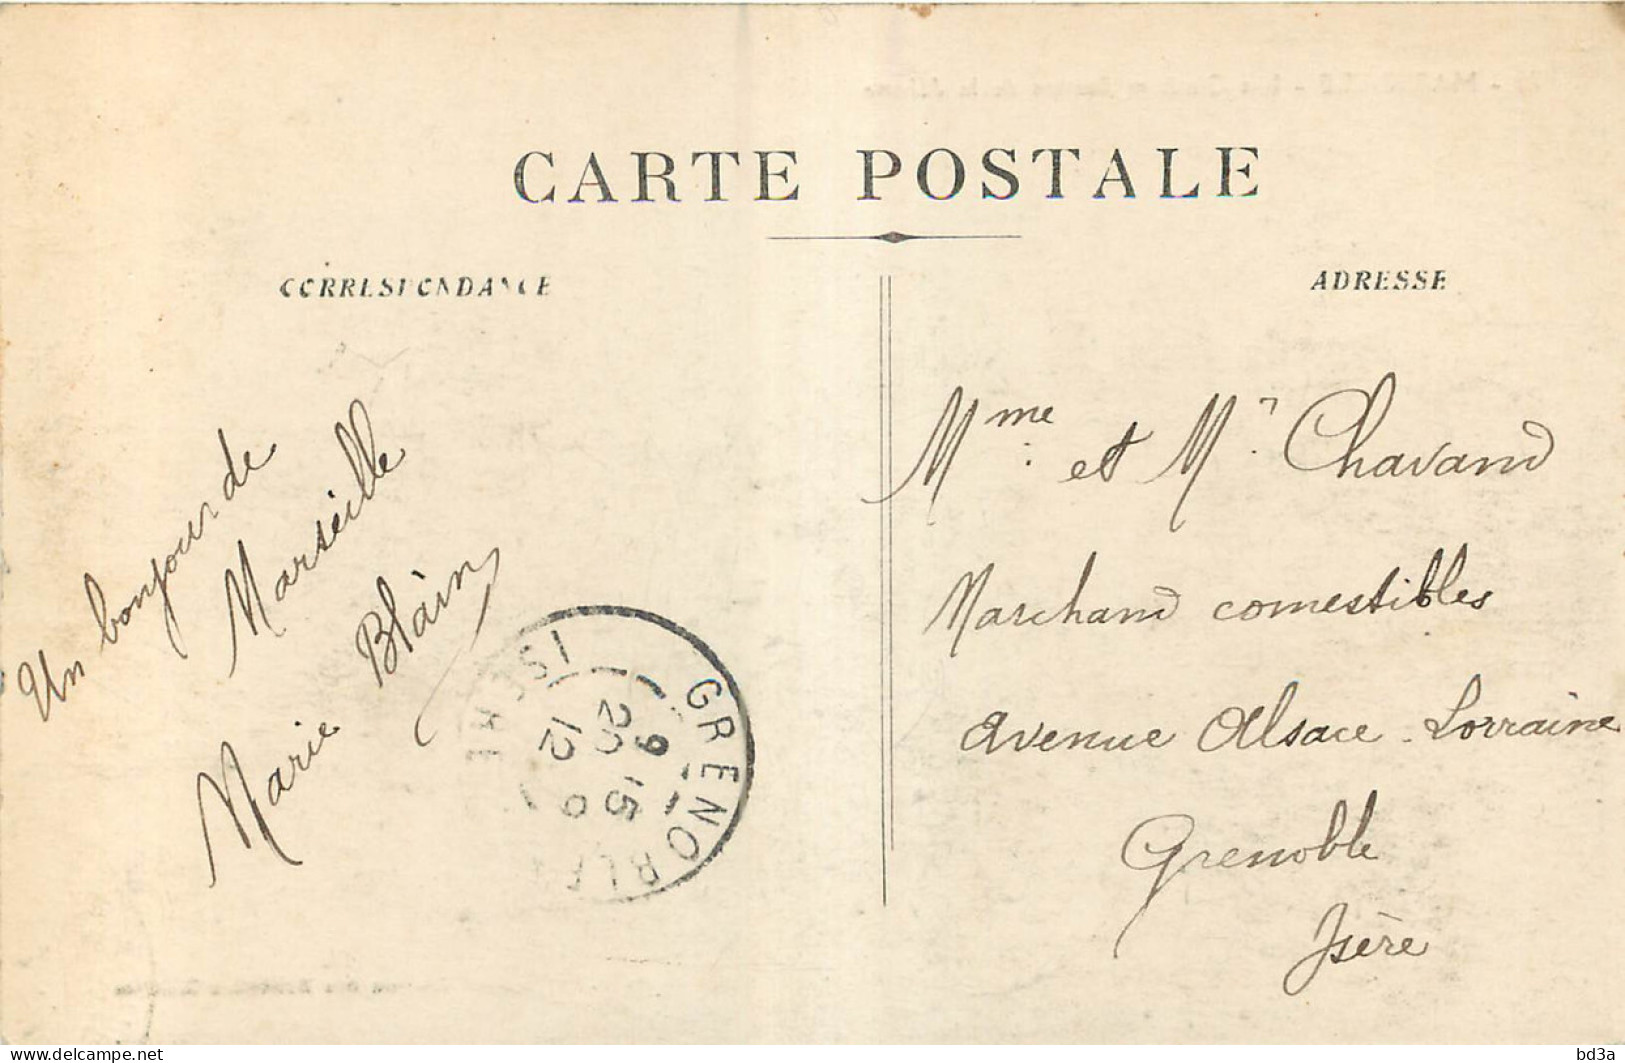 CARTE POSTALE
CORRESPONDANCE
ADRESSE
Un bonjour de
Marseille
Marie Blain
Mme et Mr Chavand
Marchand comestibles
avenue Alsace-Lorraine
Grenoble
Isère
GRENOBLE
ISERE
9 15
20
12
delcampe.net
bd3a